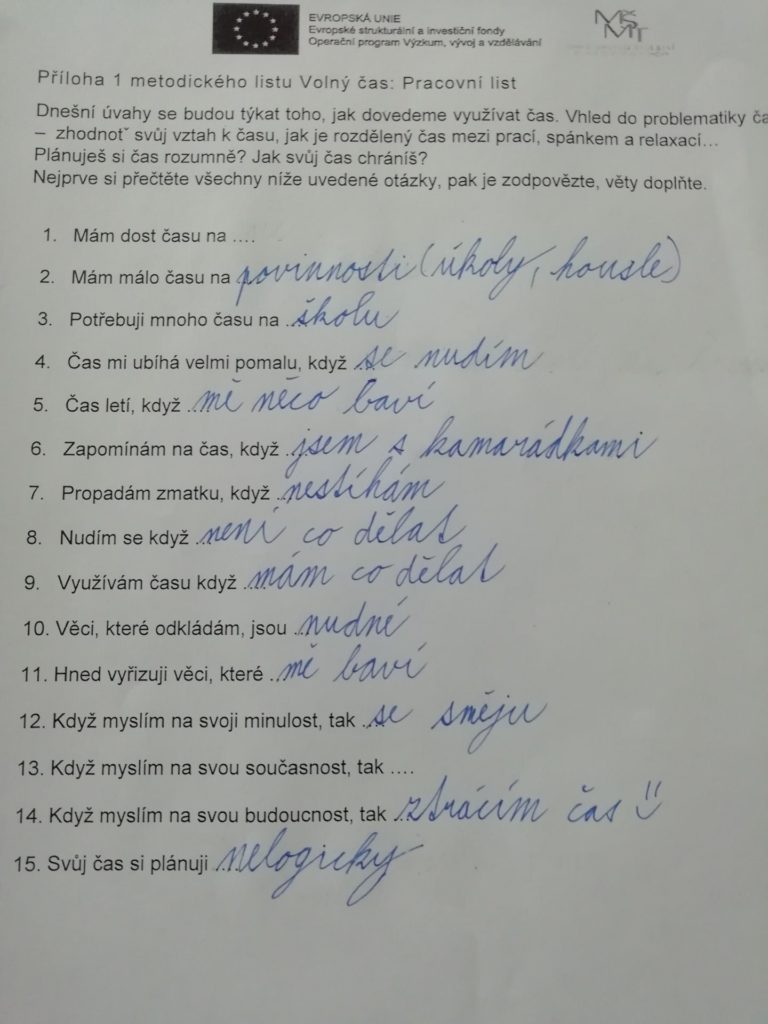 EVROPSKÁ UNIE
Evropské strukturální a investiční fondy
Operační program Výzkum, vývoj a vzdělávání
MŠMT
Příloha 1 metodického listu Volný čas: Pracovní list
Dnešní úvahy se budou týkat toho, jak dovedeme využívat čas. Vhled do problematiky ča
– zhodnoť svůj vztah k času, jak je rozdělený čas mezi prací, spánkem a relaxací...
Plánuješ si čas rozumně? Jak svůj čas chráníš?
Nejprve si přečtěte všechny níže uvedené otázky, pak je zodpovězte, věty doplňte.
1. Mám dost času na ....
2. Mám málo času na povinnosti (úkoly, housle)
3. Potřebuji mnoho času na ..školu
4. Čas mi ubíhá velmi pomalu, když ..se nudím
5. Čas letí, když ..mě něco baví
6. Zapomínám na čas, když ..jsem s kamarádkami
7. Propadám zmatku, když ..nestíhám
8. Nudím se když ..není co dělat
9. Využívám času když ....mám co dělat
10. Věci, které odkládám, jsou ..nudné
11. Hned vyřizuji věci, které ..mě baví
12. Když myslím na svoji minulost, tak ..se směju
13. Když myslím na svou současnost, tak ....
14. Když myslím na svou budoucnost, tak ..ztrácím čas
15. Svůj čas si plánuji ....nelogicky